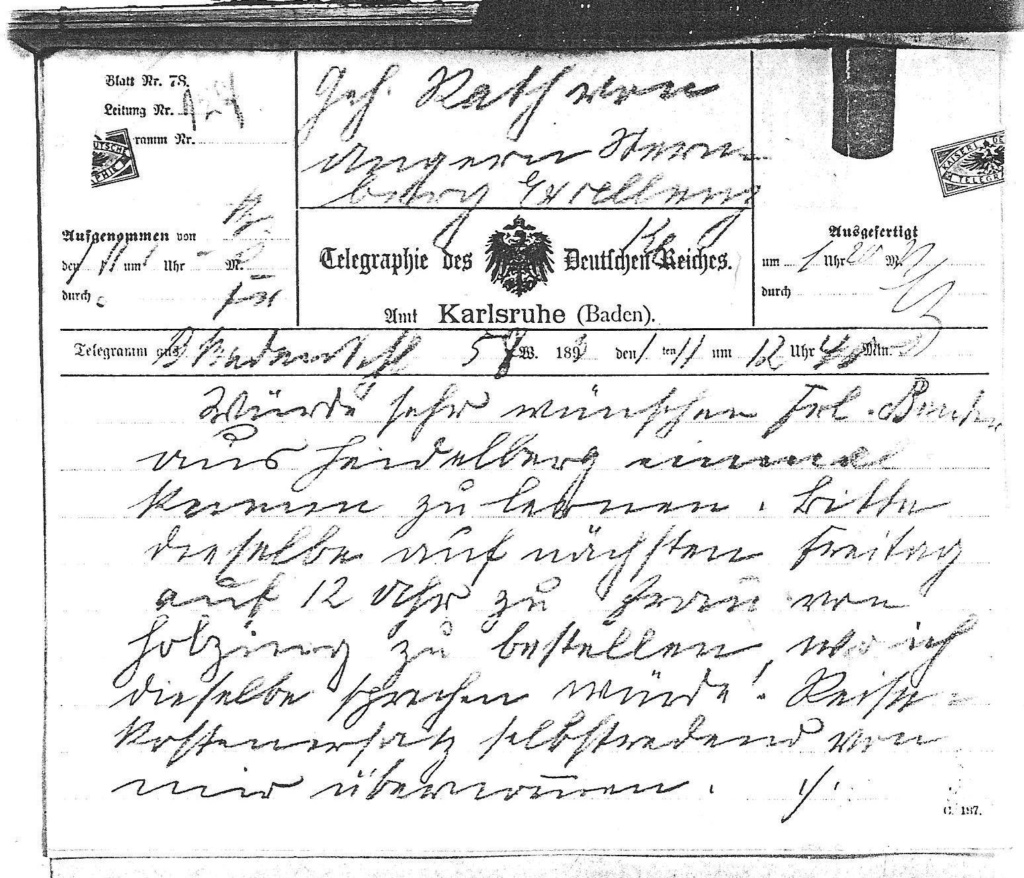 Blatt Nr. 78.
Leitung Nr.
ramm Nr.
Geh. Rath von
Ungern Stern-
berg Excellenz
Aufgenommen von
den 1/11 um 1 Uhr M.
durch
Telegraphie des Deutschen Reiches.
Amt Karlsruhe (Baden).
Ausgefertigt
um 1 Uhr 20 M.
durch
Telegramm aus W. 189 den 1 ten 11 um 12 Uhr 40 Min.
Würde sehr wünschen Frl.
aus Heidelberg einmal
kennen zu lernen. Bitte
dieselbe auf nächsten Freitag
auf 12 Uhr zu Frau von
Holzing zu bestellen, wo ich
dieselbe sprechen würde! Reise-
kostenersatz selbstredend von
mir übernommen.
C. 187.